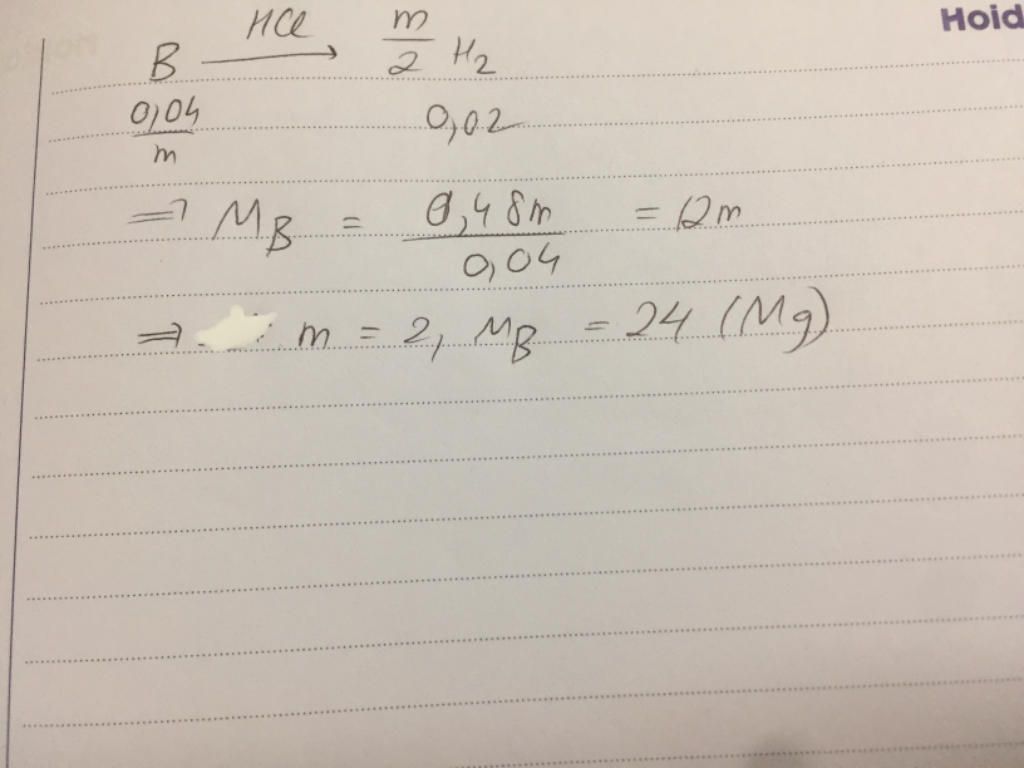 Hoid
B —HCl→ m/2 H2
0,04/m 0,02
=> MB = 0,48m/0,04 = 12m
=> m = 2, MB = 24 (Mg)